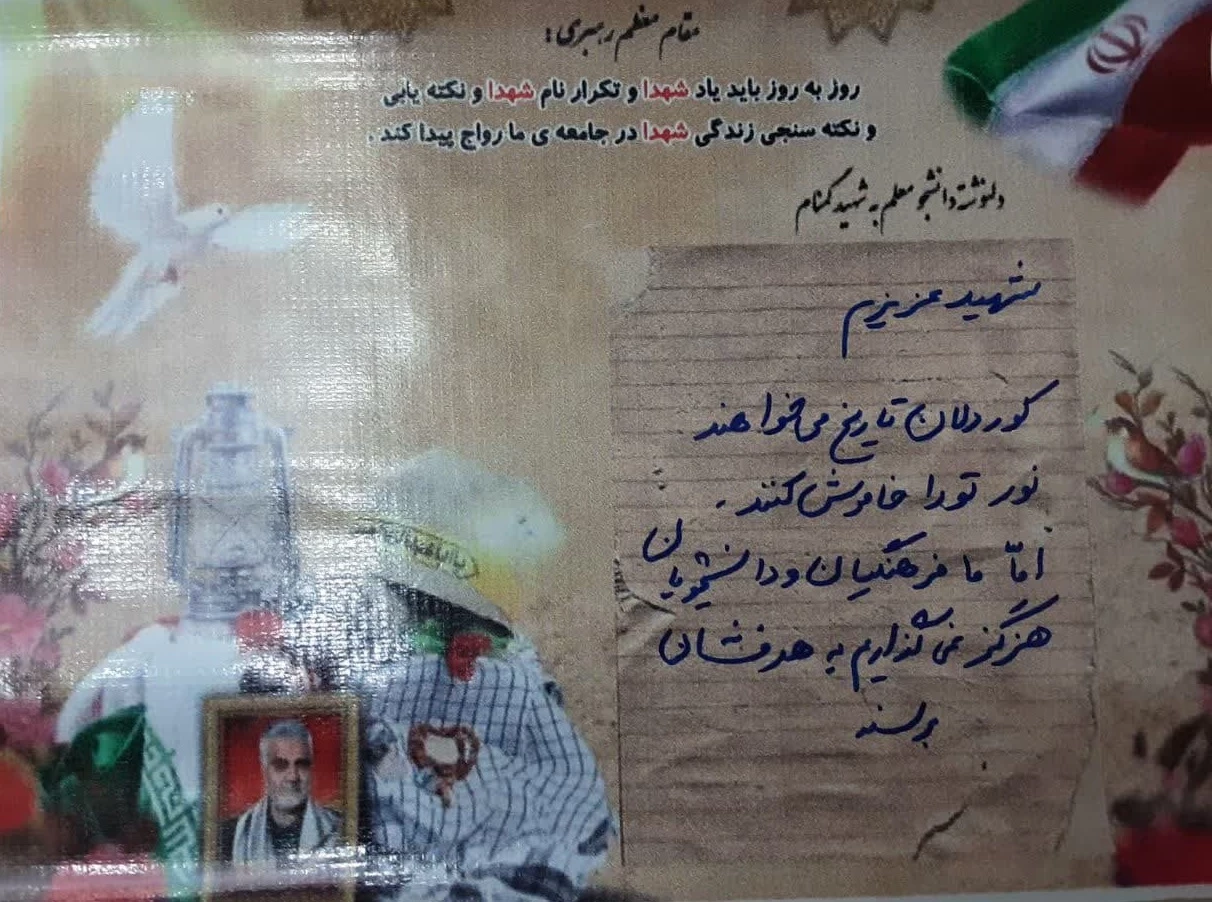 مقام معظم رهبری:
روز به روز باید یاد شهدا و تکرار نام شهدا و نکته یابی
و نکته سنجی زندگی شهدا در جامعه ی ما رواج پیدا کند.
دلنوشته دانشجو معلم به شهید گمنام
شهید عزیزم
کوردلان تاریخ می‌خواهند
نور تو را خاموش کنند.
امّا ما فرهنگیان و دانشجویان
هرگز نمی‌گذاریم به هدفشان
برسند